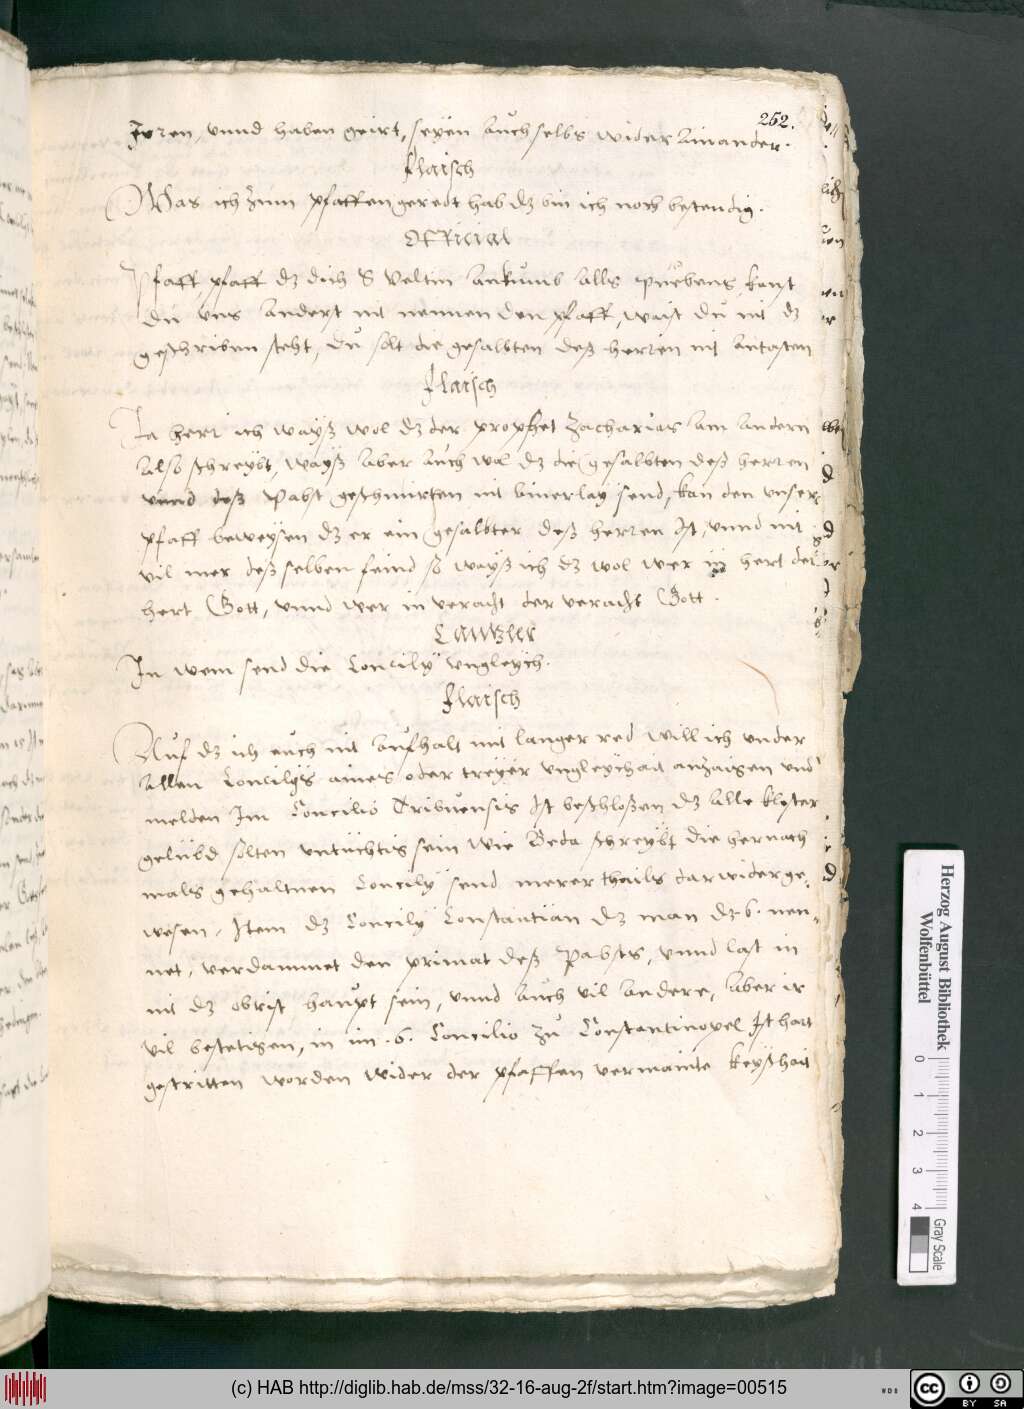 252.
Irren, vnnd haben geirt, seyen auch selbs wider ainander.
Flaisch
Was ich zum pfaffen geredt hab dz bin ich noch bestendig.
Official
Pfaff pfaff dz dich S Veltin ankumb alls puebens, kanst
du vns anderst nit nennen den pfaff, waist du nit dz
geschriben steht, du solt die gesalbten deß herren nit antasten
Flaisch
Ja herr ich wayß wol dz der prophet Zacharias am andern
also schreybt, wayß aber auch wol dz die gesalbten deß herren
vnnd deß Pabst geschmirten nit ainerlay send, kan den vnser
pfaff beweysen dz er ein gesalbter deß herren Ist, vnnd nit
vil mer deß selben feind so wayß ich dz wol wer in hert der
hert Gott, vnnd wer in veracht der veracht Gott.
Cantzler
In wem send die Concily vngleych.
Flaisch
Auf dz ich euch nit aufhalt mit langer red will ich vnder
allen Concilys aines oder treyer vngleychait anzaigen vnd
melden Im Concilio Tribuensis Ist beschloßen dz alle kloster
gelübd solten vntüchtig sein wie Beda schreybt die hernach
mals gehaltnen Concily send merer thails darwider ge,
wesen, Item dz Concily Constantian dz man dz .6. nen,
net, verdammet den primat deß Pabsts, vnnd last in
nit dz obrist haupt sein, vnnd auch vil andere, aber ir
vil bestetigen, in im .6. Concilio zu Constantinopel Ist hart
gestritten worden wider der pfaffen vermainte keyschait
Herzog August Bibliothek
Wolfenbüttel
0 1 2 3 4
Gray Scale
(c) HAB http://diglib.hab.de/mss/32-16-aug-2f/start.htm?image=00515
WDB
cc BY SA